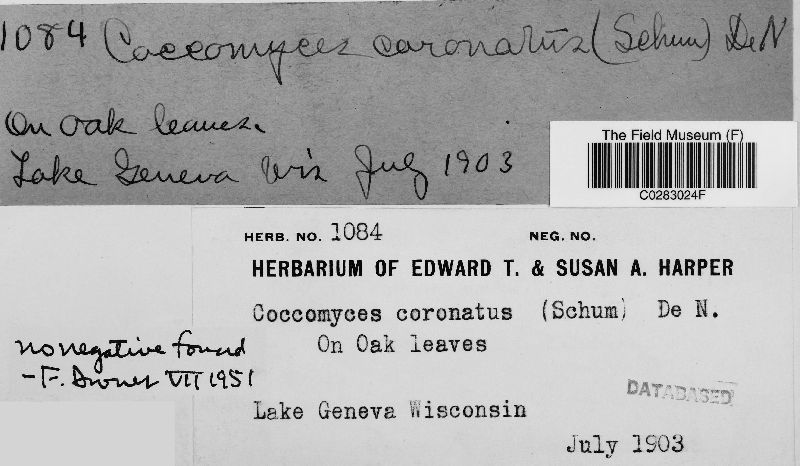 1084 Coccomyces coronatus (Schum) De N
On oak leaves.
Lake Geneva Wis July 1903
The Field Museum (F)
C0283024F
HERB. NO. 1084 NEG. NO.
HERBARIUM OF EDWARD T. & SUSAN A. HARPER
Coccomyces coronatus (Schum) De N.
On Oak leaves
no negative found
- F. VII 1951
DATABASED
Lake Geneva Wisconsin
July 1903